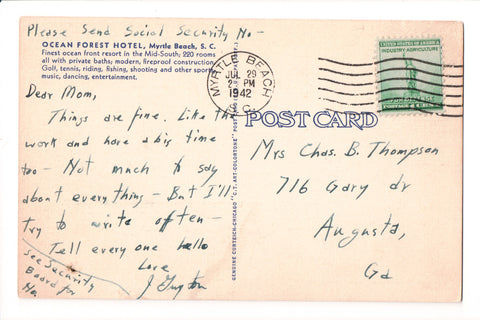 Please Send Social Security No -
OCEAN FOREST HOTEL, Myrtle Beach, S. C.
Finest ocean front resort in the Mid-South; 220 rooms
all with private baths; modern, fireproof construction.
Golf, tennis, riding, fishing, shooting and other sports,
music, dancing, entertainment.
Dear Mom,
Things are fine. Like the
work and have a big time
too - Not much to say
about everything - But I'll
try to write often -
Tell every one hello
Love
J
See Security
Board for
No.
MYRTLE BEACH
JUL 29
PM
1942
S.C.
UNITED STATES OF AMERICA
INDUSTRY AGRICULTURE
FOR DEFENSE
POST CARD
GENUINE CURTEICH-CHICAGO "C.T. ART-COLORTONE" POST CARD
Mrs Chas. B. Thompson
716 Gary dr
Augusta,
Ga